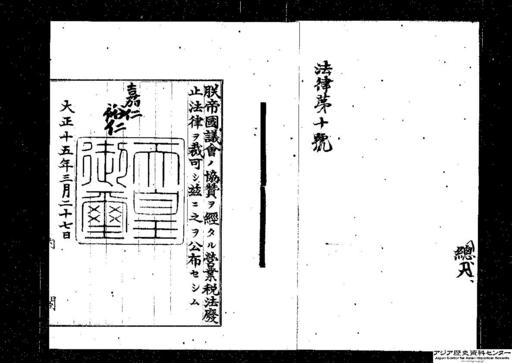 法律第十號
總九
朕帝國議會ノ協贊ヲ經タル營業稅法廢
止法律ヲ裁可シ玆ニ之ヲ公布セシム
嘉仁
裕仁
天皇
御璽
大正十五年三月二十七日
內閣
アジア歴史資料センター
Japan Center for Asian Historical Records